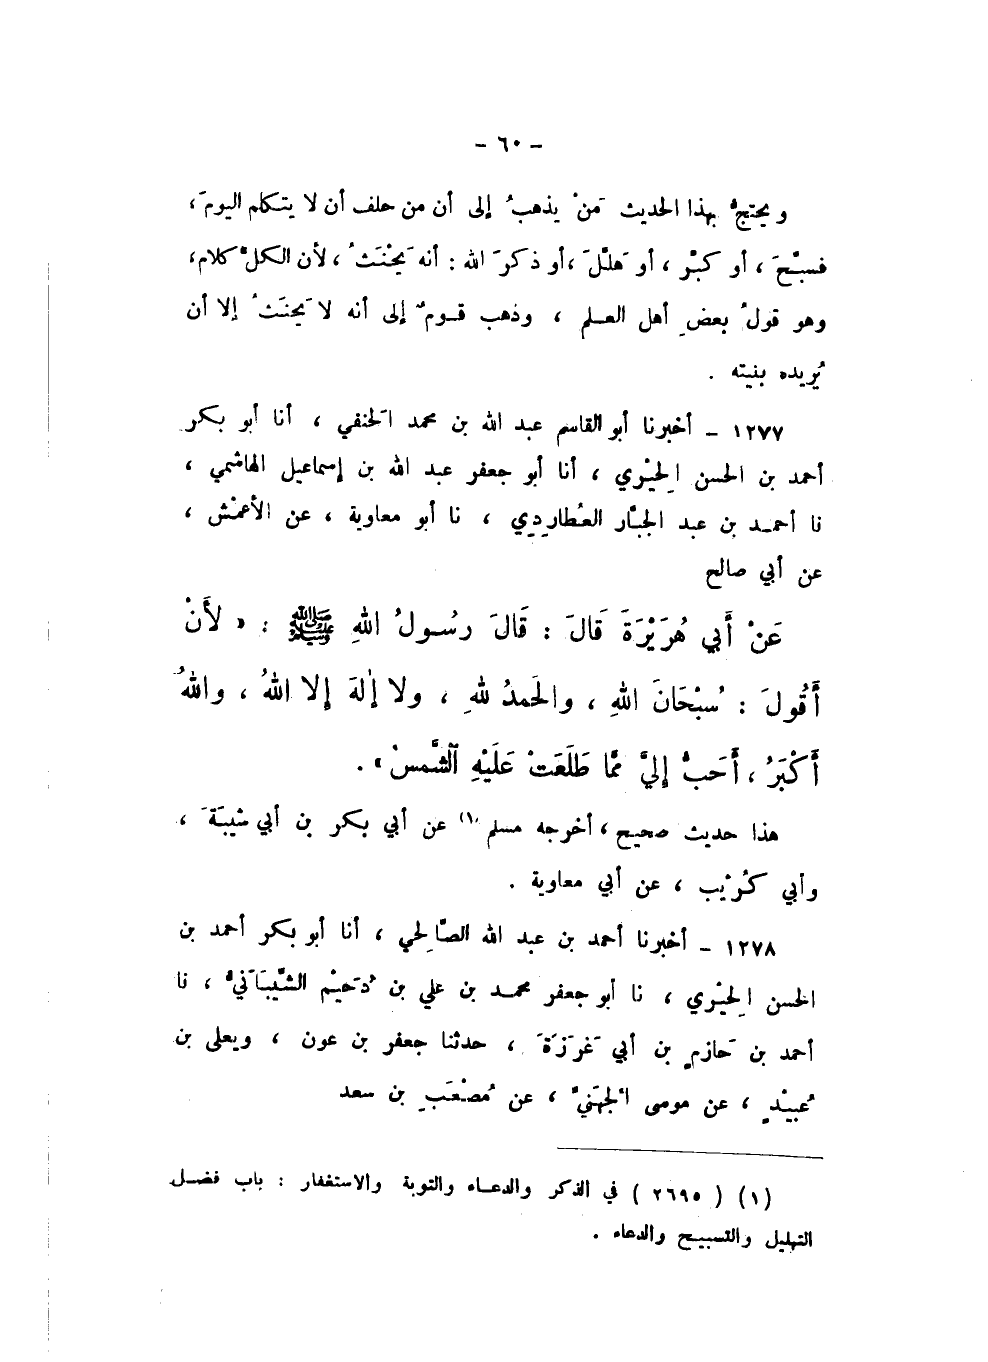 - ٦٠ -
ويحتجُّ بهذا الحديث مَنْ يذهبُ إلى أن من حلف أن لا يتكلم اليومَ ،
فسبَّحَ ، أو كبَّر ، أو هلَّلَ ، أو ذكرَ الله : أنه يَحْنَثُ ، لأن الكلَّ كلام ،
وهو قولُ بعضِ أهل العلم ، وذهب قومٌ إلى أنه لا يَحنَثُ إلا أن
يُريده بنيته .
١٢٧٧ - أخبرنا أبو القاسم عبد الله بن محمد الحَنفي ، أنا أبو بكر
أحمد بن الحسن الحِيْري ، أنا أبو جعفر عبد الله بن إسماعيل الهاشمي ،
نا أحمد بن عبد الجبَّار العُطارِدِي ، نا أبو معاوية ، عن الأعمَش ،
عن أبي صالح
عَنْ أَبي هُرَيْرَةَ قَالَ : قَالَ رسُولُ اللهِ ﷺ : « لأَنْ
أَقُولَ : سُبْحَانَ اللهِ ، والحَمدُ للهِ ، ولا إلٰهَ إلا اللهُ ، واللهُ
أَكْبَرُ ، أَحَبُّ إليَّ مِمَّا طَلَعَتْ عَلَيْهِ الشَّمسْ » .
هذا حديث صحيح ، أخرجه مسلم (١) عن أبي بكر بن أبي شيبَةَ ،
وأبي كُرَيْب ، عن أبي معاوية .
١٢٧٨ - أخبرنا أحمد بن عبد الله الصَّالِحي ، أنا أبو بكر أحمد بن
الحسن الحِيْري ، نا أبو جعفر محمد بن علي بن دُحَيْم الشَّيبَانيُّ ، نا
أحمد بن حَازمِ بن أبي غَرَزَةَ ، حدثنا جعفر بن عون ، ويعلى بن
عُبيْدٍ ، عن موسى الجُهَنيِّ ، عن مُصْعَبِ بن سعد
(١) ( ٢٦٩٥ ) في الذكر والدعاء والتوبة والاستغفار : باب فضل
التهليل والتسبيح والدعاء .